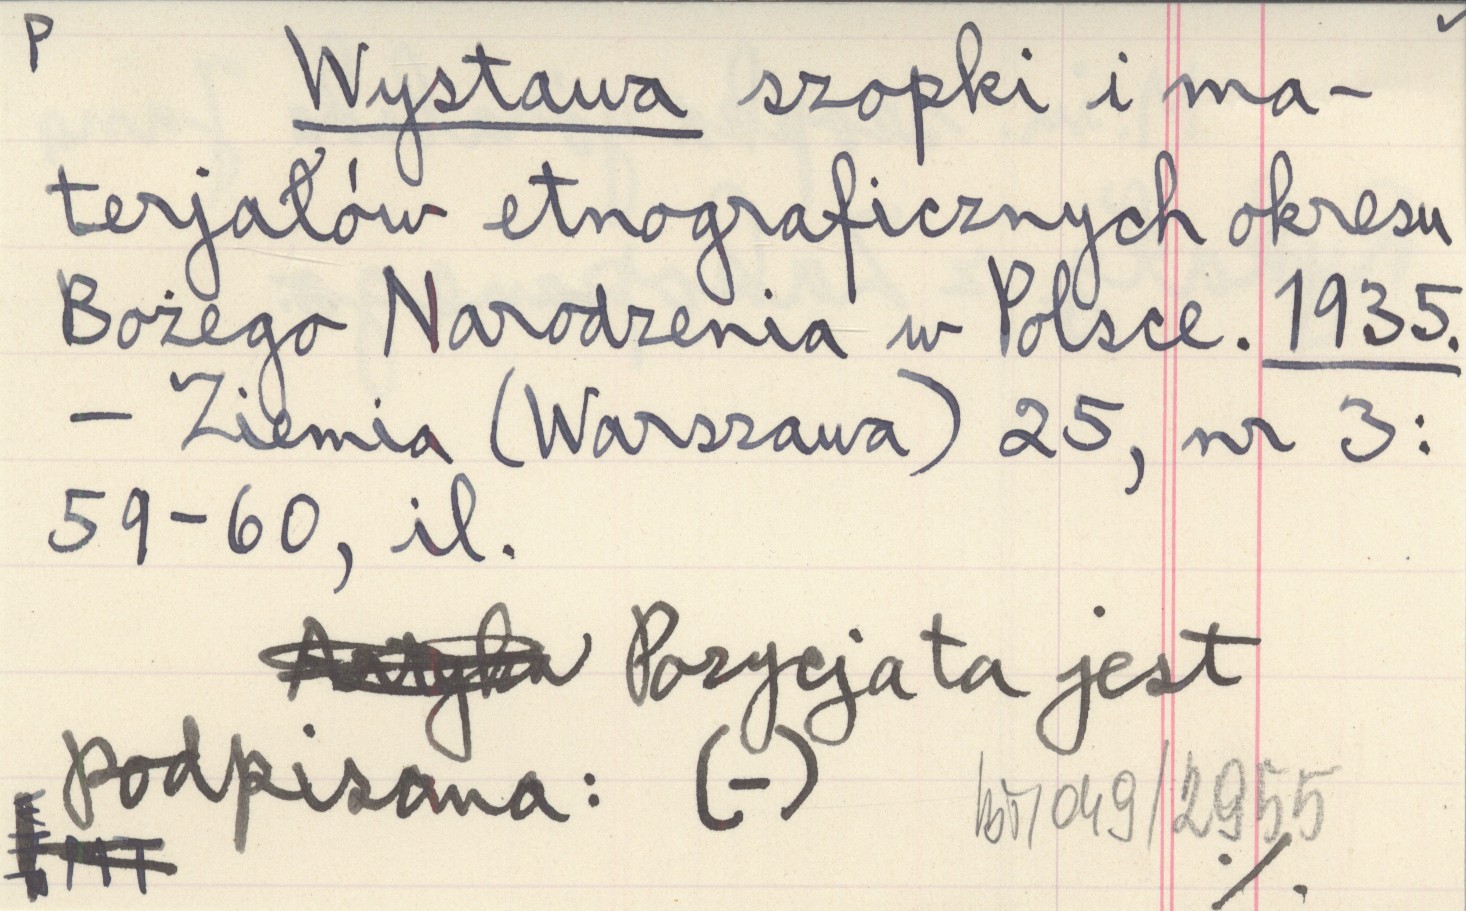 P
Wystawa szopki i ma-
terjałów etnograficznych okresu
Bożego Narodzenia w Polsce. 1935.
– Ziemia (Warszawa) 25, nr 3:
59-60, il.
Pozycja ta jest
podpisana: (-)
049/2955
./.